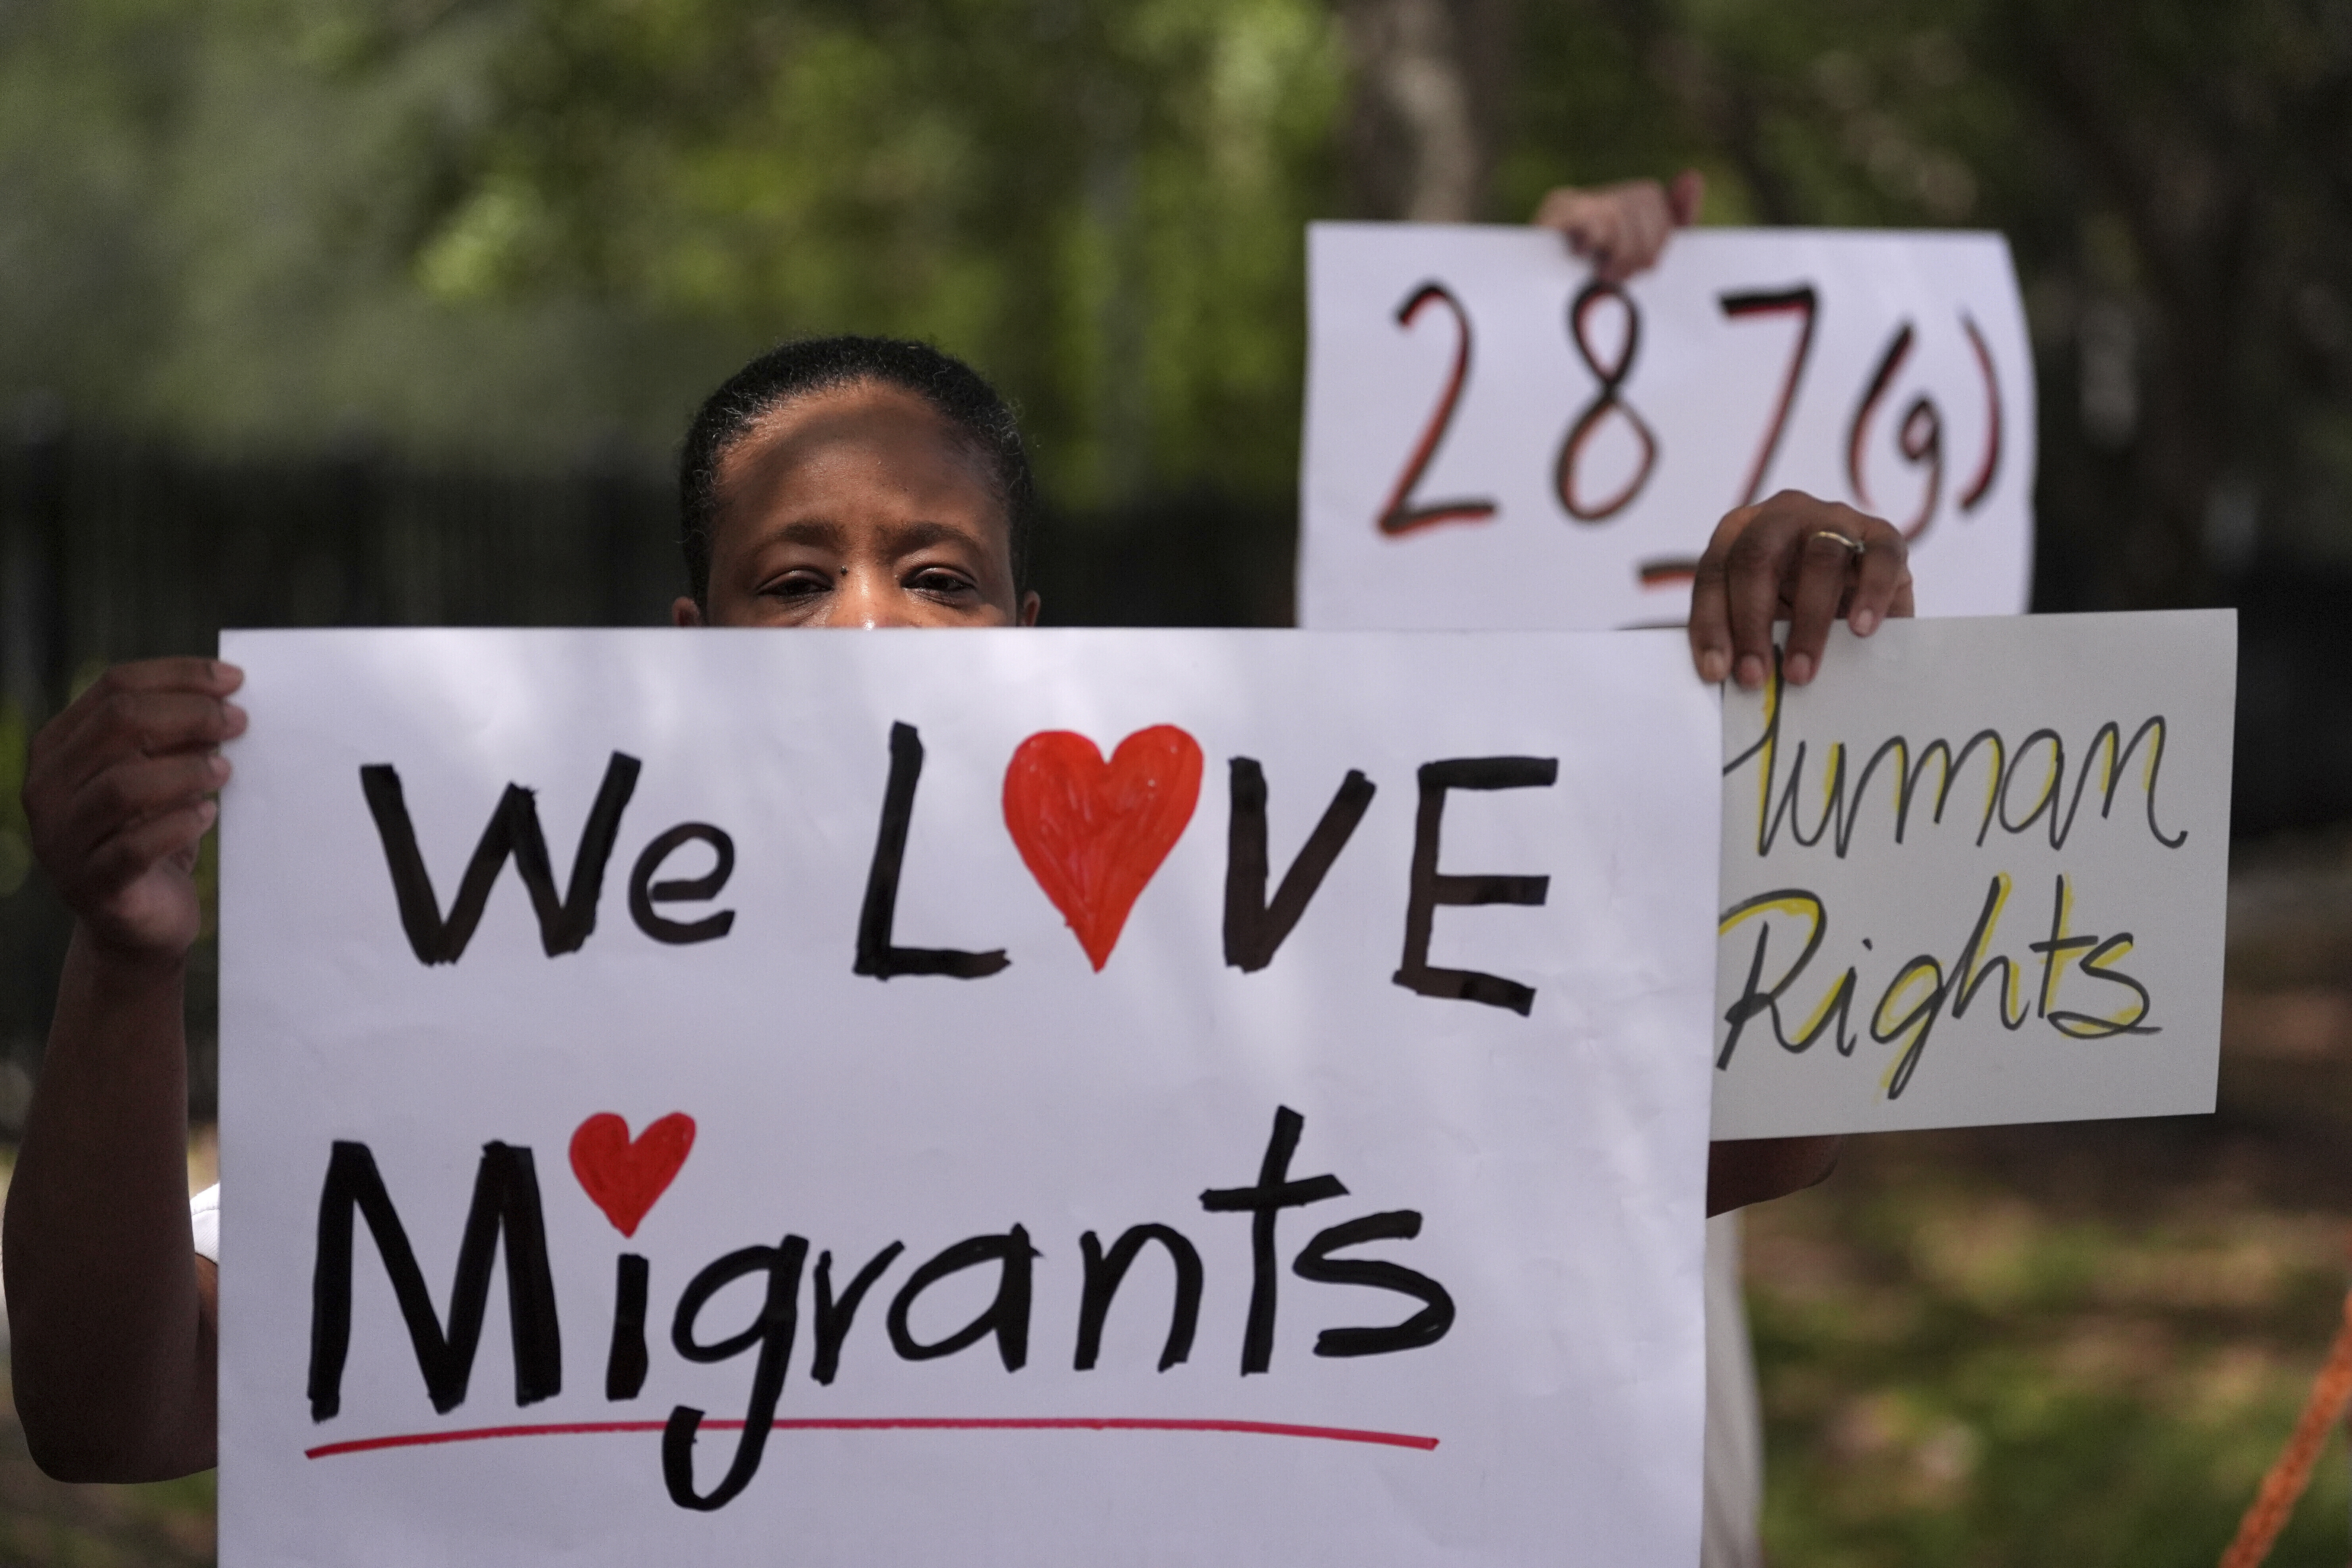 We L♥VE
Migrants
287(g)
Human
Rights